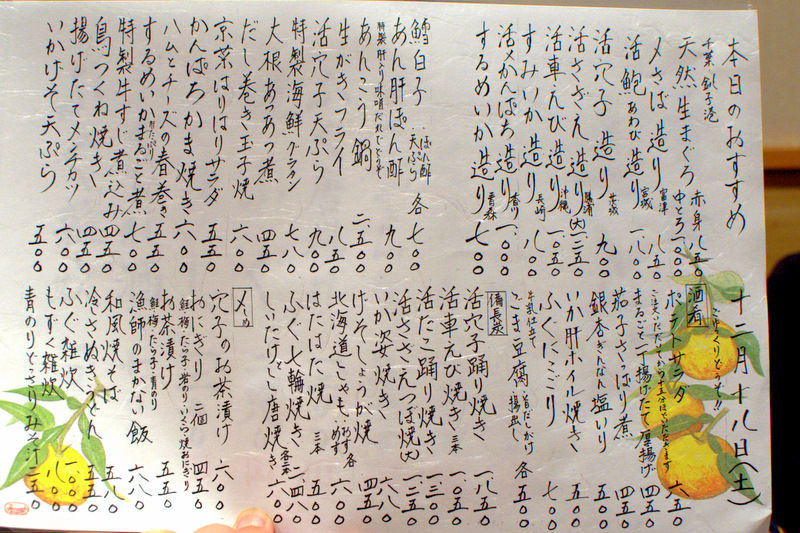 本日のおすすめ
十二月十八日(土)
ごゆっくりどうぞ!!
千葉 銚子港
天然生まぐろ 赤身 八五〇
中とろ 一、〇〇〇
〆さば 造り 富津 八五〇
活鮑 あわび 造り 宮城 一、八〇〇
活穴子 造り 茨城 九〇〇
活さざえ 造り 勝浦 (大) 一、三五〇
活車えび 造り 沖縄 一、〇五〇
すみいか 造り 長崎 八〇〇
活〆かんぱち 造り 香川 一、〇〇〇
するめいか 造り 青森 七〇〇
鱈白子 ぽん酢 天ぷら 各七〇〇
あん肝ぽん酢 九〇〇
あんこう鍋 二、五〇〇
生がきフライ 八五〇
活穴子天ぷら 九〇〇
特製海鮮グラタン 七八〇
大根あつあつ煮 四五〇
だし巻き玉子焼 六〇〇
京菜はりはりサラダ 五五〇
かんぱちかま焼き 六〇〇
ハムとチーズの春巻き 五五〇
するめいかまるごと煮 七〇〇
特製牛すじ煮込み 五五〇
鳥つくね焼き 四五〇
揚げたてメンチカツ 六〇〇
いかげそ天ぷら 五五〇
酒肴
ポテトサラダ 六五〇
まるごと一丁揚げたて厚揚げ 四五〇
茄子さっぱり煮 四五〇
銀杏ぎんなん塩いり 五〇〇
いか肝ホイル焼き 五五〇
ふぐにこごり 七〇〇
ごま豆腐 旨だしかけ 揚出し 各五〇〇
備長炭
活穴子踊り焼き 一、八五〇
活車えび焼き 三本 一、〇五〇
活たこ踊り焼き 一、三〇〇
活さざえつぼ焼(大) 一、三五〇
いか姿焼き 六八〇
げそしょうが焼 六八〇
北海道ししゃも おす めす 各六〇〇
はたはた焼 三本 五〇〇
ふぐ七輪焼き 一、四八〇
〆しめ
穴子のお茶漬け 六〇〇
おにぎり 二個 四五〇
お茶漬け 五五〇
鮭・梅・たら子・青のり
漁師のまかない飯 六八〇
和風焼そば 五八〇
冷さぬきうどん 五五〇
ふぐ雑炊 一、〇〇〇
もずく雑炊 八〇〇
青のりどっさりみそ汁 二五〇